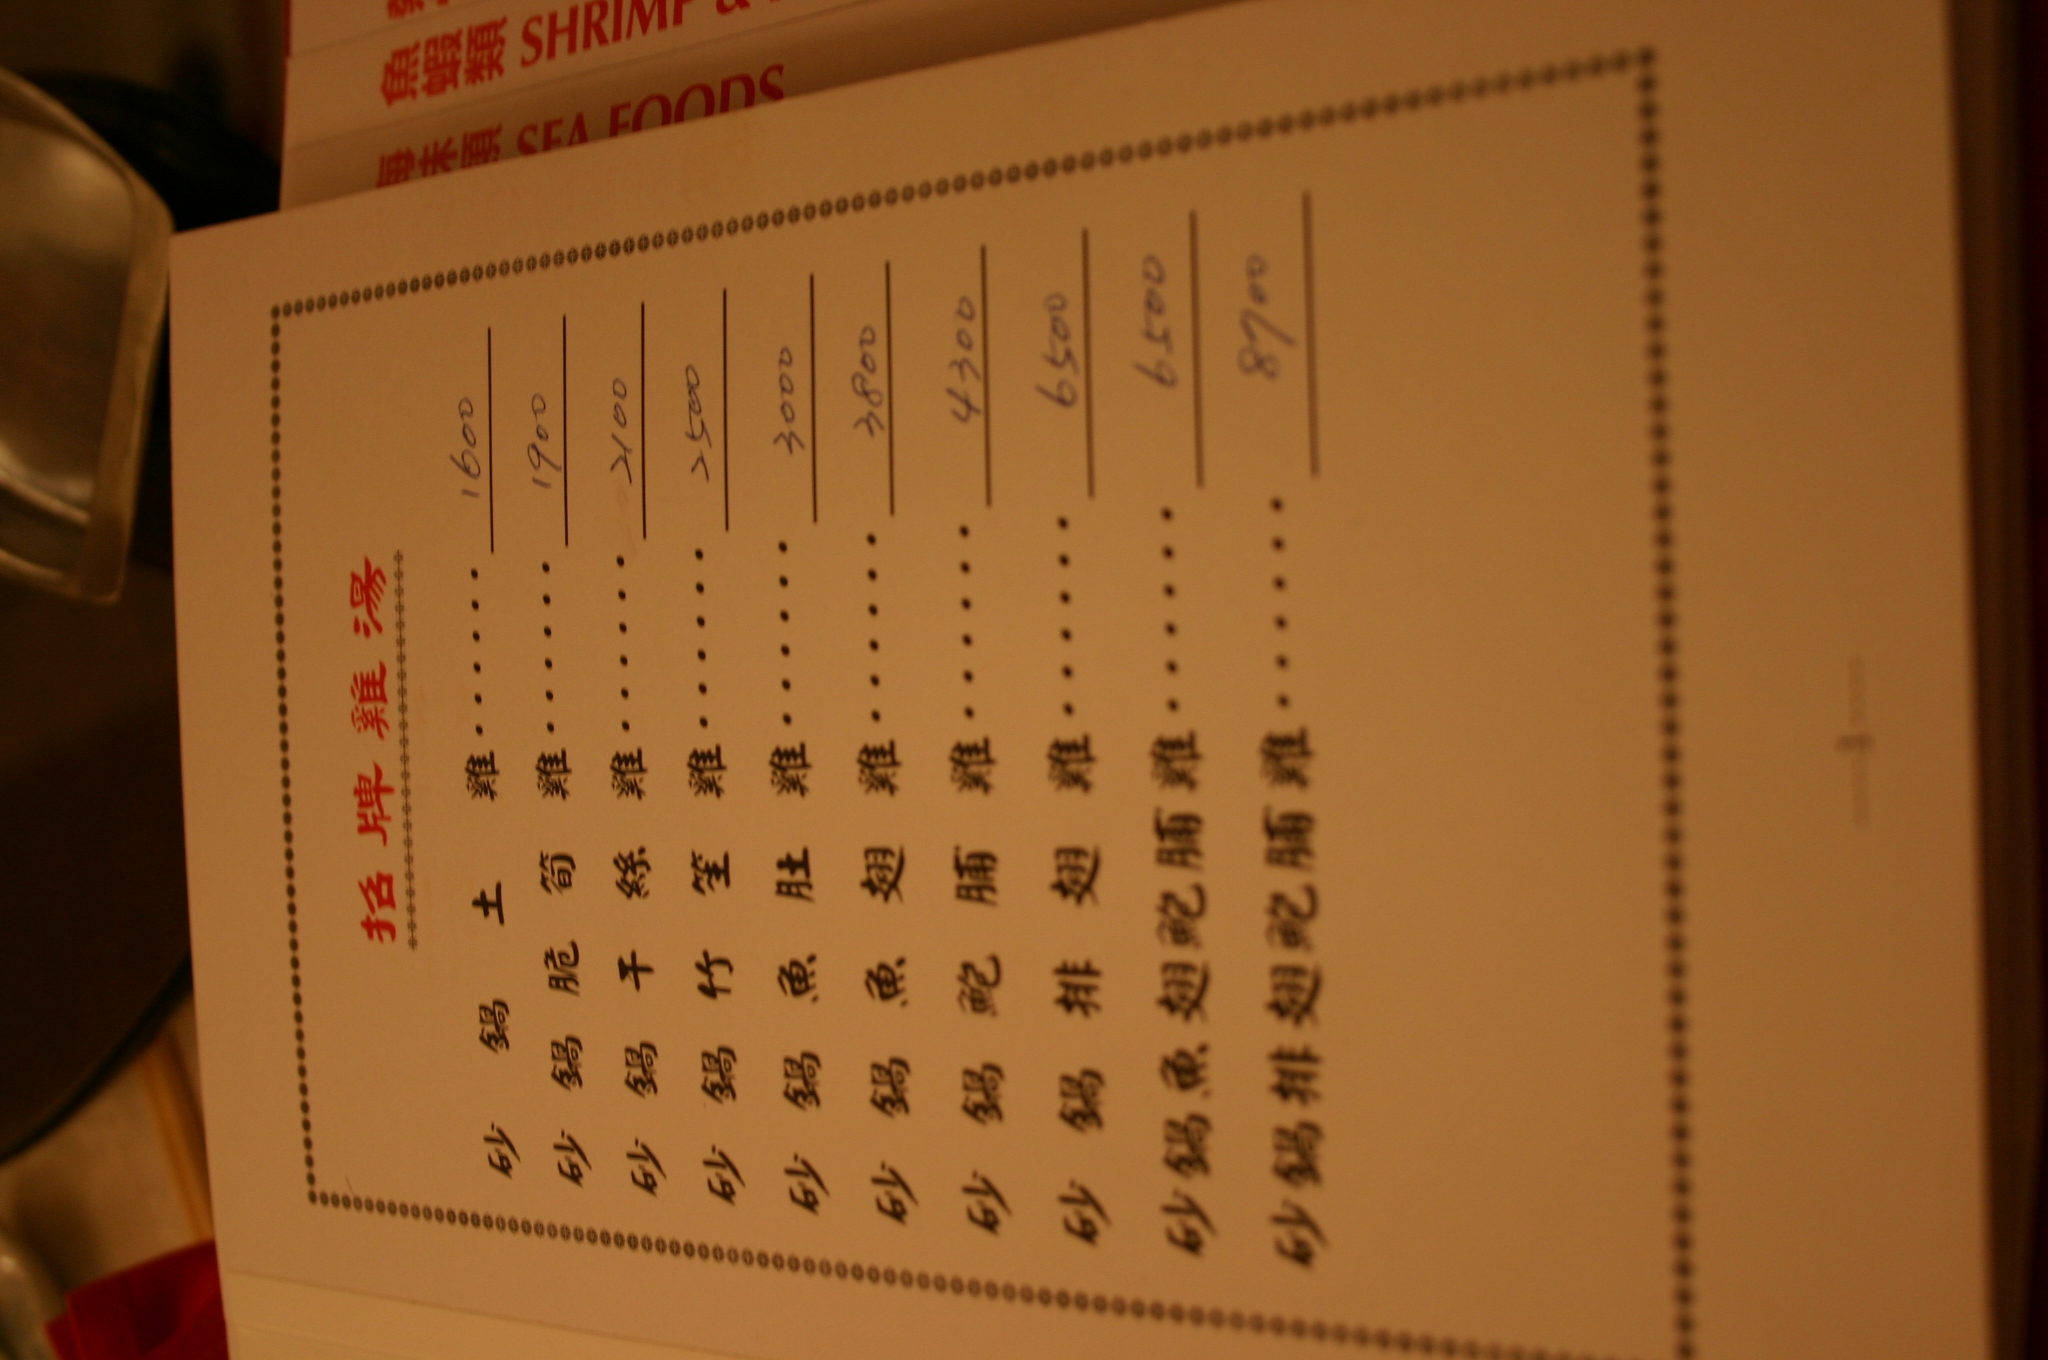 魚蝦類 SHRIMP &
海味類 SEA FOODS
招牌雞湯
砂鍋土雞······ 1600
砂鍋脆筍雞······ 1900
砂鍋干絲雞······ 2100
砂鍋竹笙雞······ 2500
砂鍋魚肚雞······ 3000
砂鍋魚翅雞······ 3800
砂鍋鮑脯雞······ 4300
砂鍋排翅雞······ 6500
砂鍋魚翅鮑脯雞······ 6500
砂鍋排翅鮑脯雞······